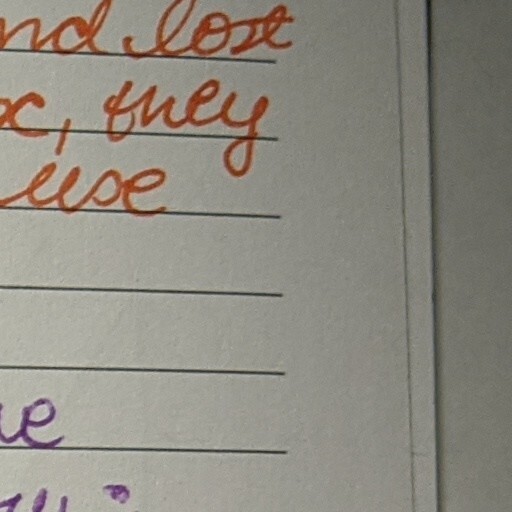 nd lost
x, they
use
ue